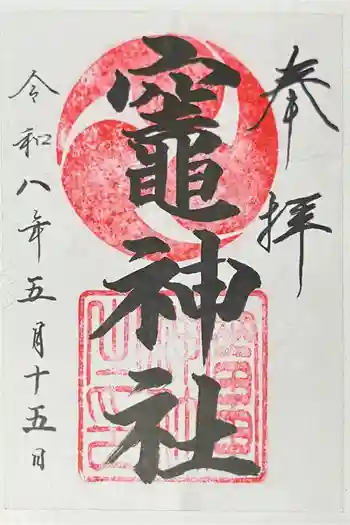 奉拝
竈神社
令和八年五月十五日